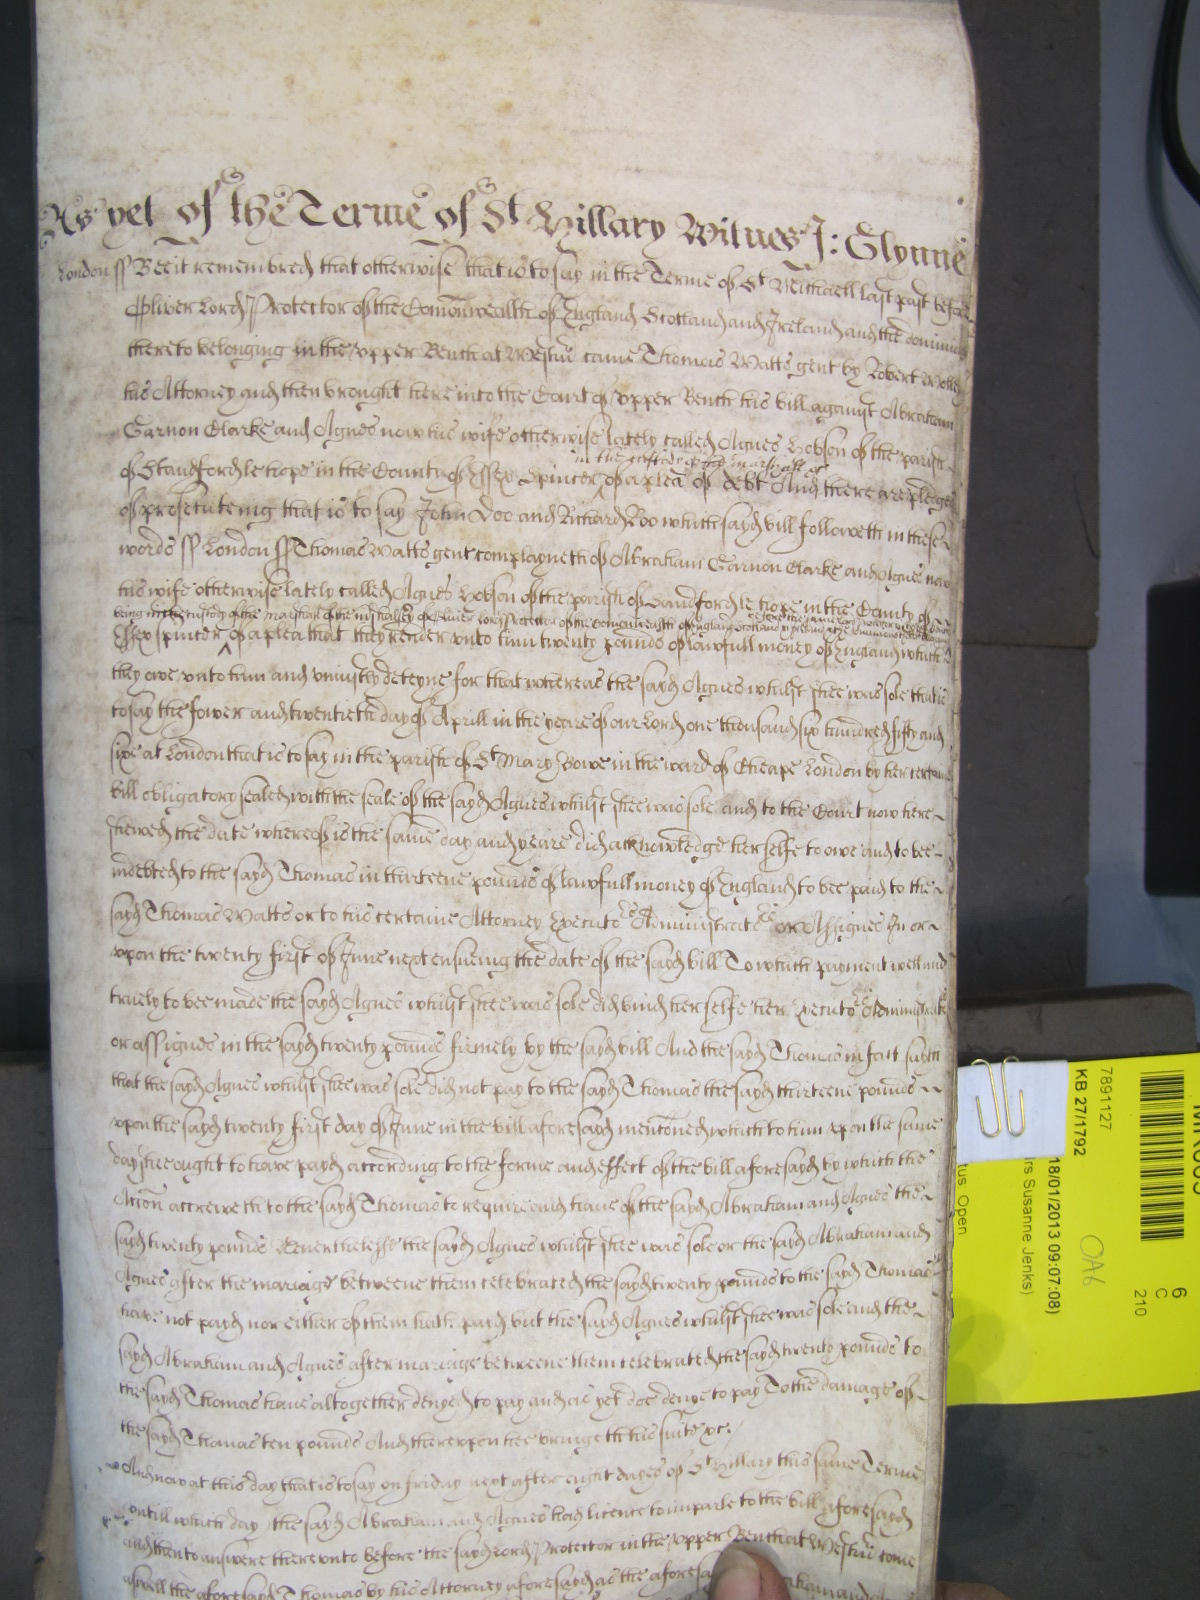 As yet of the Terme of St Hillary Witnes J: Glynne
London ss Bee it remembred that otherwise that is to say in the Terme of St Michaell last past before
Oliver Lord Protector of the Comonwealth of England Scotland and Ireland and the dominions
thereto belonging in the upper Bench at Westmr came Thomas Watts gent by Robert
his Attorney and then brought here into the Court of upper Bench his bill against Abraham
Garnon Clarke and Agnes now his wife otherwise lately called Agnes Hobson of the parish
in the custody of the marshall &c
of Standford le hope in the County of Essex Spinster of a plea of debt And there are pledges
of prosecuteing that is to say John Doo and Richard Roo which sayd bill followeth in these
words ss London ss Thomas Watts gent complayneth of Abraham Garnon Clarke and Agnes now
his wife otherwise lately called Agnes Hobson of the parish of Standford le hope in the County of
being in the custody of the marshall of the marshallsey of Oliver Lord Protector of the Comonwealth of England Scotland & Ireland & the dominions
Essex spinster of a plea that they render unto him twenty pounds of lawfull money of England which
they owe unto him and uniustly deteyne for that whereas the sayd Agnes whilst shee was sole that is
to say the fower and twentieth day of Aprill in the yeare of our Lord one thousand six hundred fifty and
sixe at London that is to say in the parish of St Mary Bowe in the ward of Cheape London by her certaine
bill obligatory sealed with the seale of the sayd Agnes whilst shee was sole and to the Court now here
shewed the date whereof is the same day and yeare did acknowledge her selfe to owe and to bee
indebted to the sayd Thomas in thirteene pounds of lawfull money of England to bee paid to the
sayd Thomas Watts or to his certaine Attorney Executors Administrators or Assignes In or
upon the twenty first of June next ensueing the date of the sayd bill To which payment well and
truely to bee made the sayd Agnes whilst shee was sole did bind her selfe her Executors Administrators
or assignes in the sayd twenty pounds firmely by the sayd bill And the sayd Thomas in fact saith
that the sayd Agnes whilst shee was sole did not pay to the sayd Thomas the sayd thirteene pounds
upon the sayd twenty first day of June in the bill aforesayd mentoned which to him upon the same
day shee ought to have payd according to the forme and effect of the bill aforesayd by which the
Accon accreweth to the sayd Thomas to require and have of the sayd Abraham and Agnes the
sayd twenty pounds Neverthelesse the sayd Agnes whilst shee was sole or the sayd Abraham and
Agnes after the mariage betweene them celebrated the sayd twenty pounds to the sayd Thomas
have not payd nor either of them hath paid but the sayd Agnes whilst shee was sole and the
sayd Abraham and Agnes after mariage betweene them celebrated the sayd twenty pounds to
the sayd Thomas have altogether denyed to pay and as yet doe denye to pay To the damage of
the sayd Thomas ten pounds And thereupon hee bringeth his suite &c.
And now at this day that is to say on friday next after eight dayes of St Hillary this same Terme
untill which day the sayd Abraham and Agnes had licence to imparle to the bill aforesayd
and then to answere thereunto before the sayd Lord Protector in the upper Bench at Westmr come
aswell the aforesayd Thomas by his Attorney aforesayd as the aforesayd Abraham and
7891127
KB 27/1792
18/01/2013 09:07:08)
rs Susanne Jenks)
tus Open
OA6
6
C
210